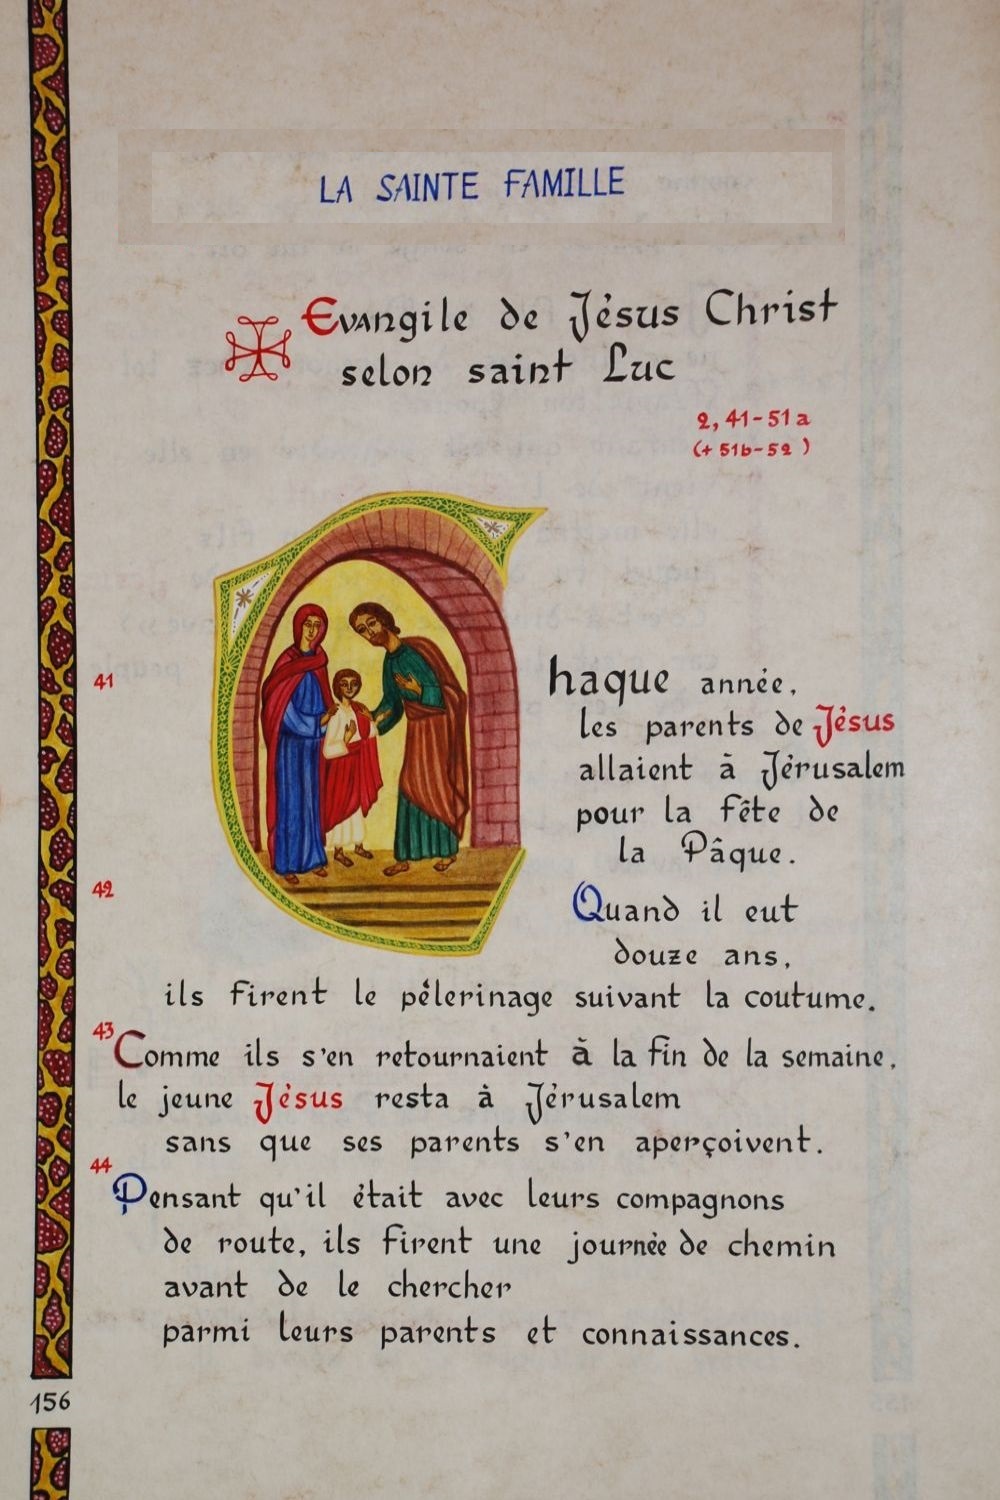 LA SAINTE FAMILLE
Evangile de Jésus Christ
selon saint Luc
2, 41-51a
(+ 51b-52)
41 Chaque année,
les parents de Jésus
allaient à Jérusalem
pour la fête de
la Pâque.
42 Quand il eut
douze ans,
ils firent le pélerinage suivant la coutume.
43 Comme ils s'en retournaient à la fin de la semaine,
le jeune Jésus resta à Jérusalem
sans que ses parents s'en aperçoivent.
44 Pensant qu'il était avec leurs compagnons
de route, ils firent une journée de chemin
avant de le chercher
parmi leurs parents et connaissances.
156